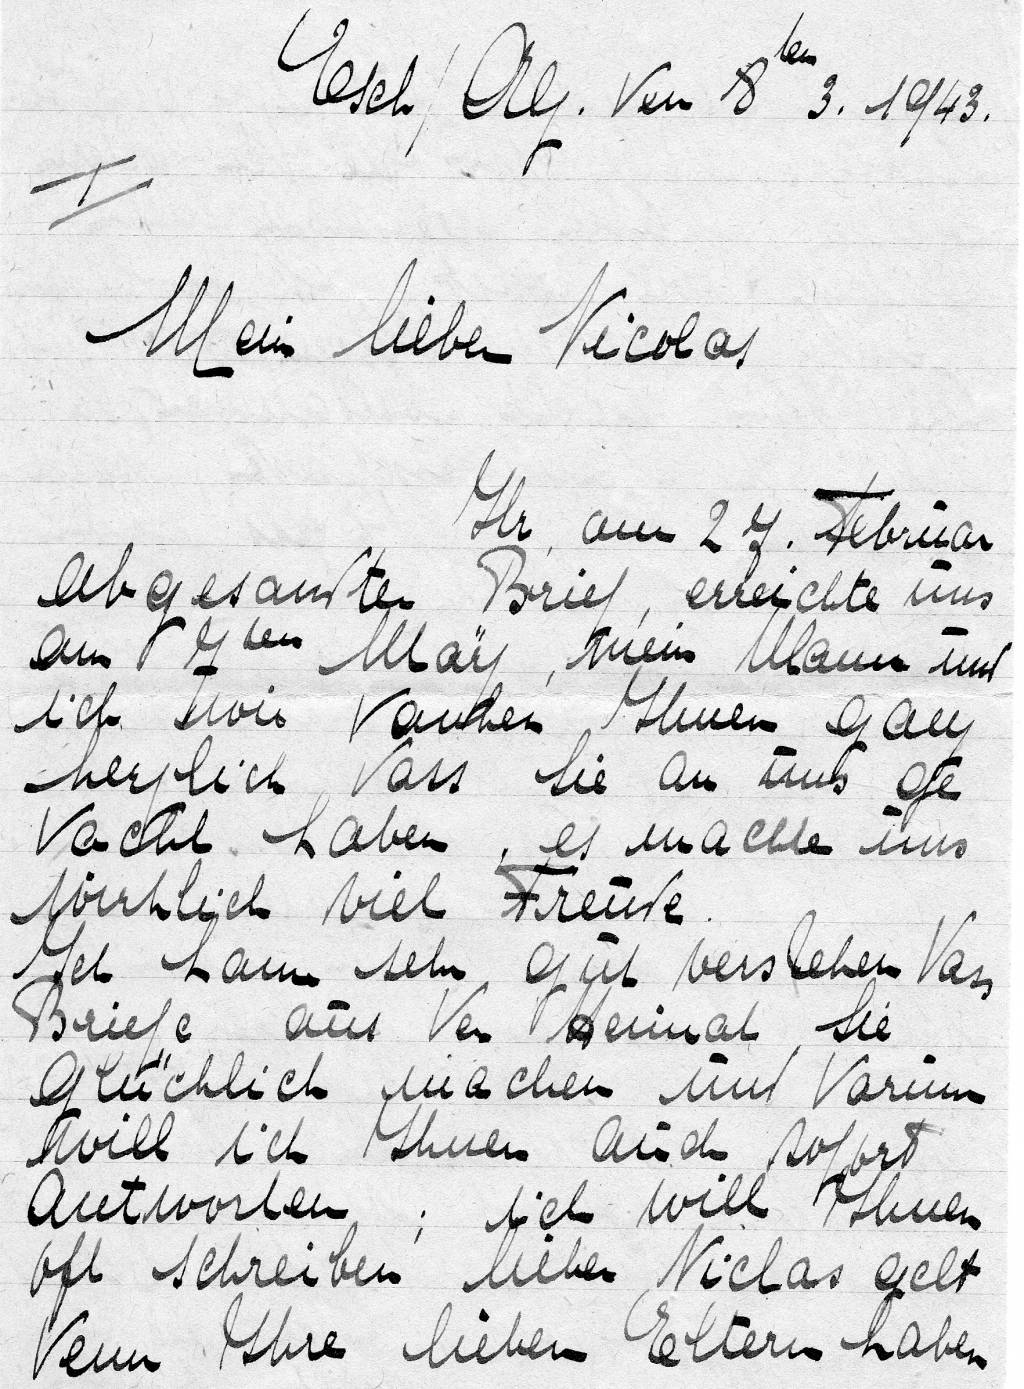 Esch/Alz. den 8ten 3. 1943.
I
Mein lieber Nicolas
Ihr, am 27. Februar
abgesandter Brief, erreichte uns
am 7ten März, mein Mann und
ich wir danken Ihnen ganz
herzlich dass Sie an uns ge
dacht haben, es machte uns
wirklich viel Freude.
Ich kann sehr gut verstehen dass
Briefe aus der Heimat Sie
glücklich machen und darum
will ich Ihnen auch sofort
antworten; ich will Ihnen
oft schreiben lieber Niclas gelt
denn Ihre lieben Eltern haben